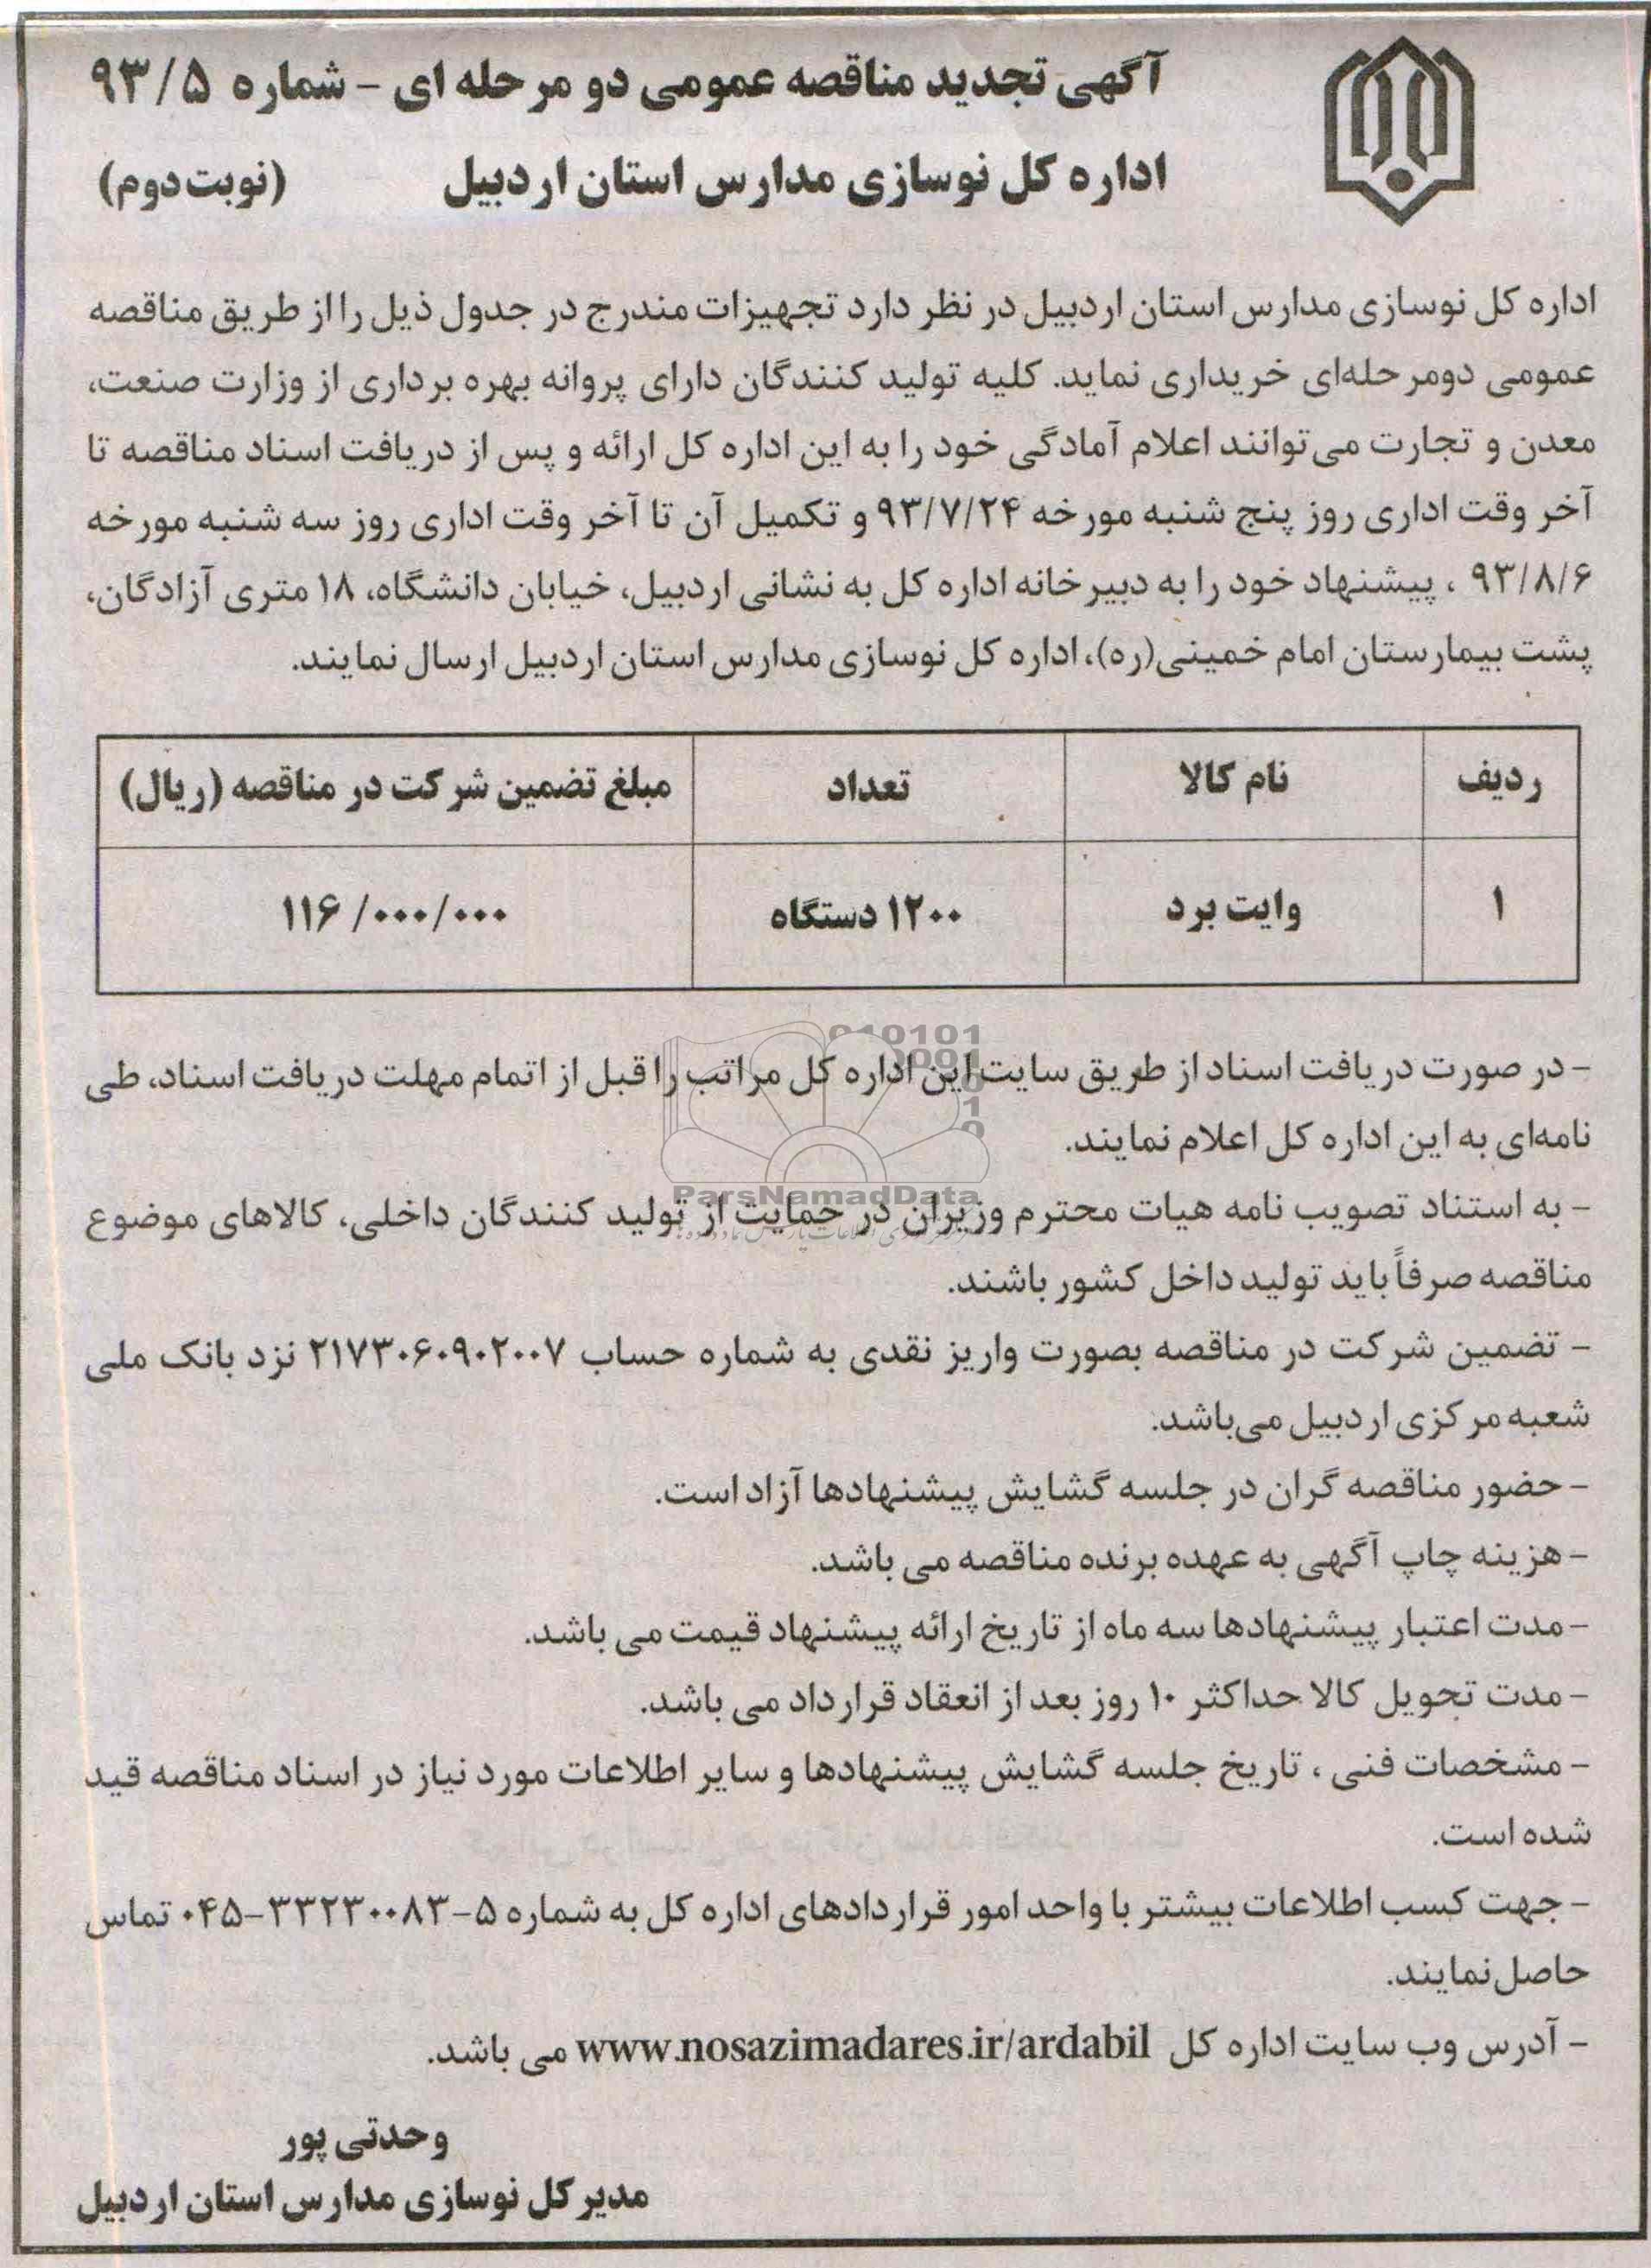 آگهی تجدید مناقصه عمومی دو مرحله ای - شماره ۹۳/۵
اداره کل نوسازی مدارس استان اردبیل (نوبت دوم)
اداره کل نوسازی مدارس استان اردبیل در نظر دارد تجهیزات مندرج در جدول ذیل را از طریق مناقصه
عمومی دومرحله‌ای خریداری نماید. کلیه تولید کنندگان دارای پروانه بهره برداری از وزارت صنعت،
معدن و تجارت می‌توانند اعلام آمادگی خود را به این اداره کل ارائه و پس از دریافت اسناد مناقصه تا
آخر وقت اداری روز پنج شنبه مورخه ۹۳/۷/۲۴ و تکمیل آن تا آخر وقت اداری روز سه شنبه مورخه
۹۳/۸/۶ ، پیشنهاد خود را به دبیرخانه اداره کل به نشانی اردبیل، خیابان دانشگاه، ۱۸ متری آزادگان،
پشت بیمارستان امام خمینی(ره)، اداره کل نوسازی مدارس استان اردبیل ارسال نمایند.
ردیف نام کالا تعداد مبلغ تضمین شرکت در مناقصه (ریال)
۱ وایت برد ۱۲۰۰ دستگاه ۱۱۶/۰۰۰/۰۰۰
- در صورت دریافت اسناد از طریق سایت این اداره کل مراتب را قبل از اتمام مهلت دریافت اسناد، طی
نامه‌ای به این اداره کل اعلام نمایند.
- به استناد تصویب نامه هیات محترم وزیران در حمایت از تولید کنندگان داخلی، کالاهای موضوع
مناقصه صرفاً باید تولید داخل کشور باشند.
- تضمین شرکت در مناقصه بصورت واریز نقدی به شماره حساب ۲۱۷۳۰۶۰۹۰۲۰۰۷ نزد بانک ملی
شعبه مرکزی اردبیل می‌باشد.
- حضور مناقصه گران در جلسه گشایش پیشنهادها آزاد است.
- هزینه چاپ آگهی به عهده برنده مناقصه می باشد.
- مدت اعتبار پیشنهادها سه ماه از تاریخ ارائه پیشنهاد قیمت می باشد.
- مدت تحویل کالا حداکثر ۱۰ روز بعد از انعقاد قرارداد می باشد.
- مشخصات فنی ، تاریخ جلسه گشایش پیشنهادها و سایر اطلاعات مورد نیاز در اسناد مناقصه قید
شده است.
- جهت کسب اطلاعات بیشتر با واحد امور قراردادهای اداره کل به شماره ۵-۳۳۲۳۰۰۸۳-۰۴۵ تماس
حاصل نمایند.
- آدرس وب سایت اداره کل www.nosazimadares.ir/ardabil می باشد.
وحدتی پور
مدیر کل نوسازی مدارس استان اردبیل
ParsNamadData